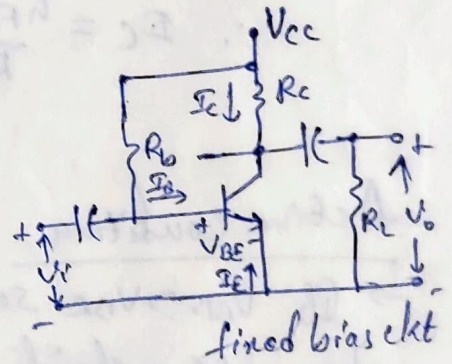 VCC
IC ↓ RC
Rb
IB →
+
+
+
VBE
RL
Vo
Vi
IE ↑
-
-
fixed bias ckt